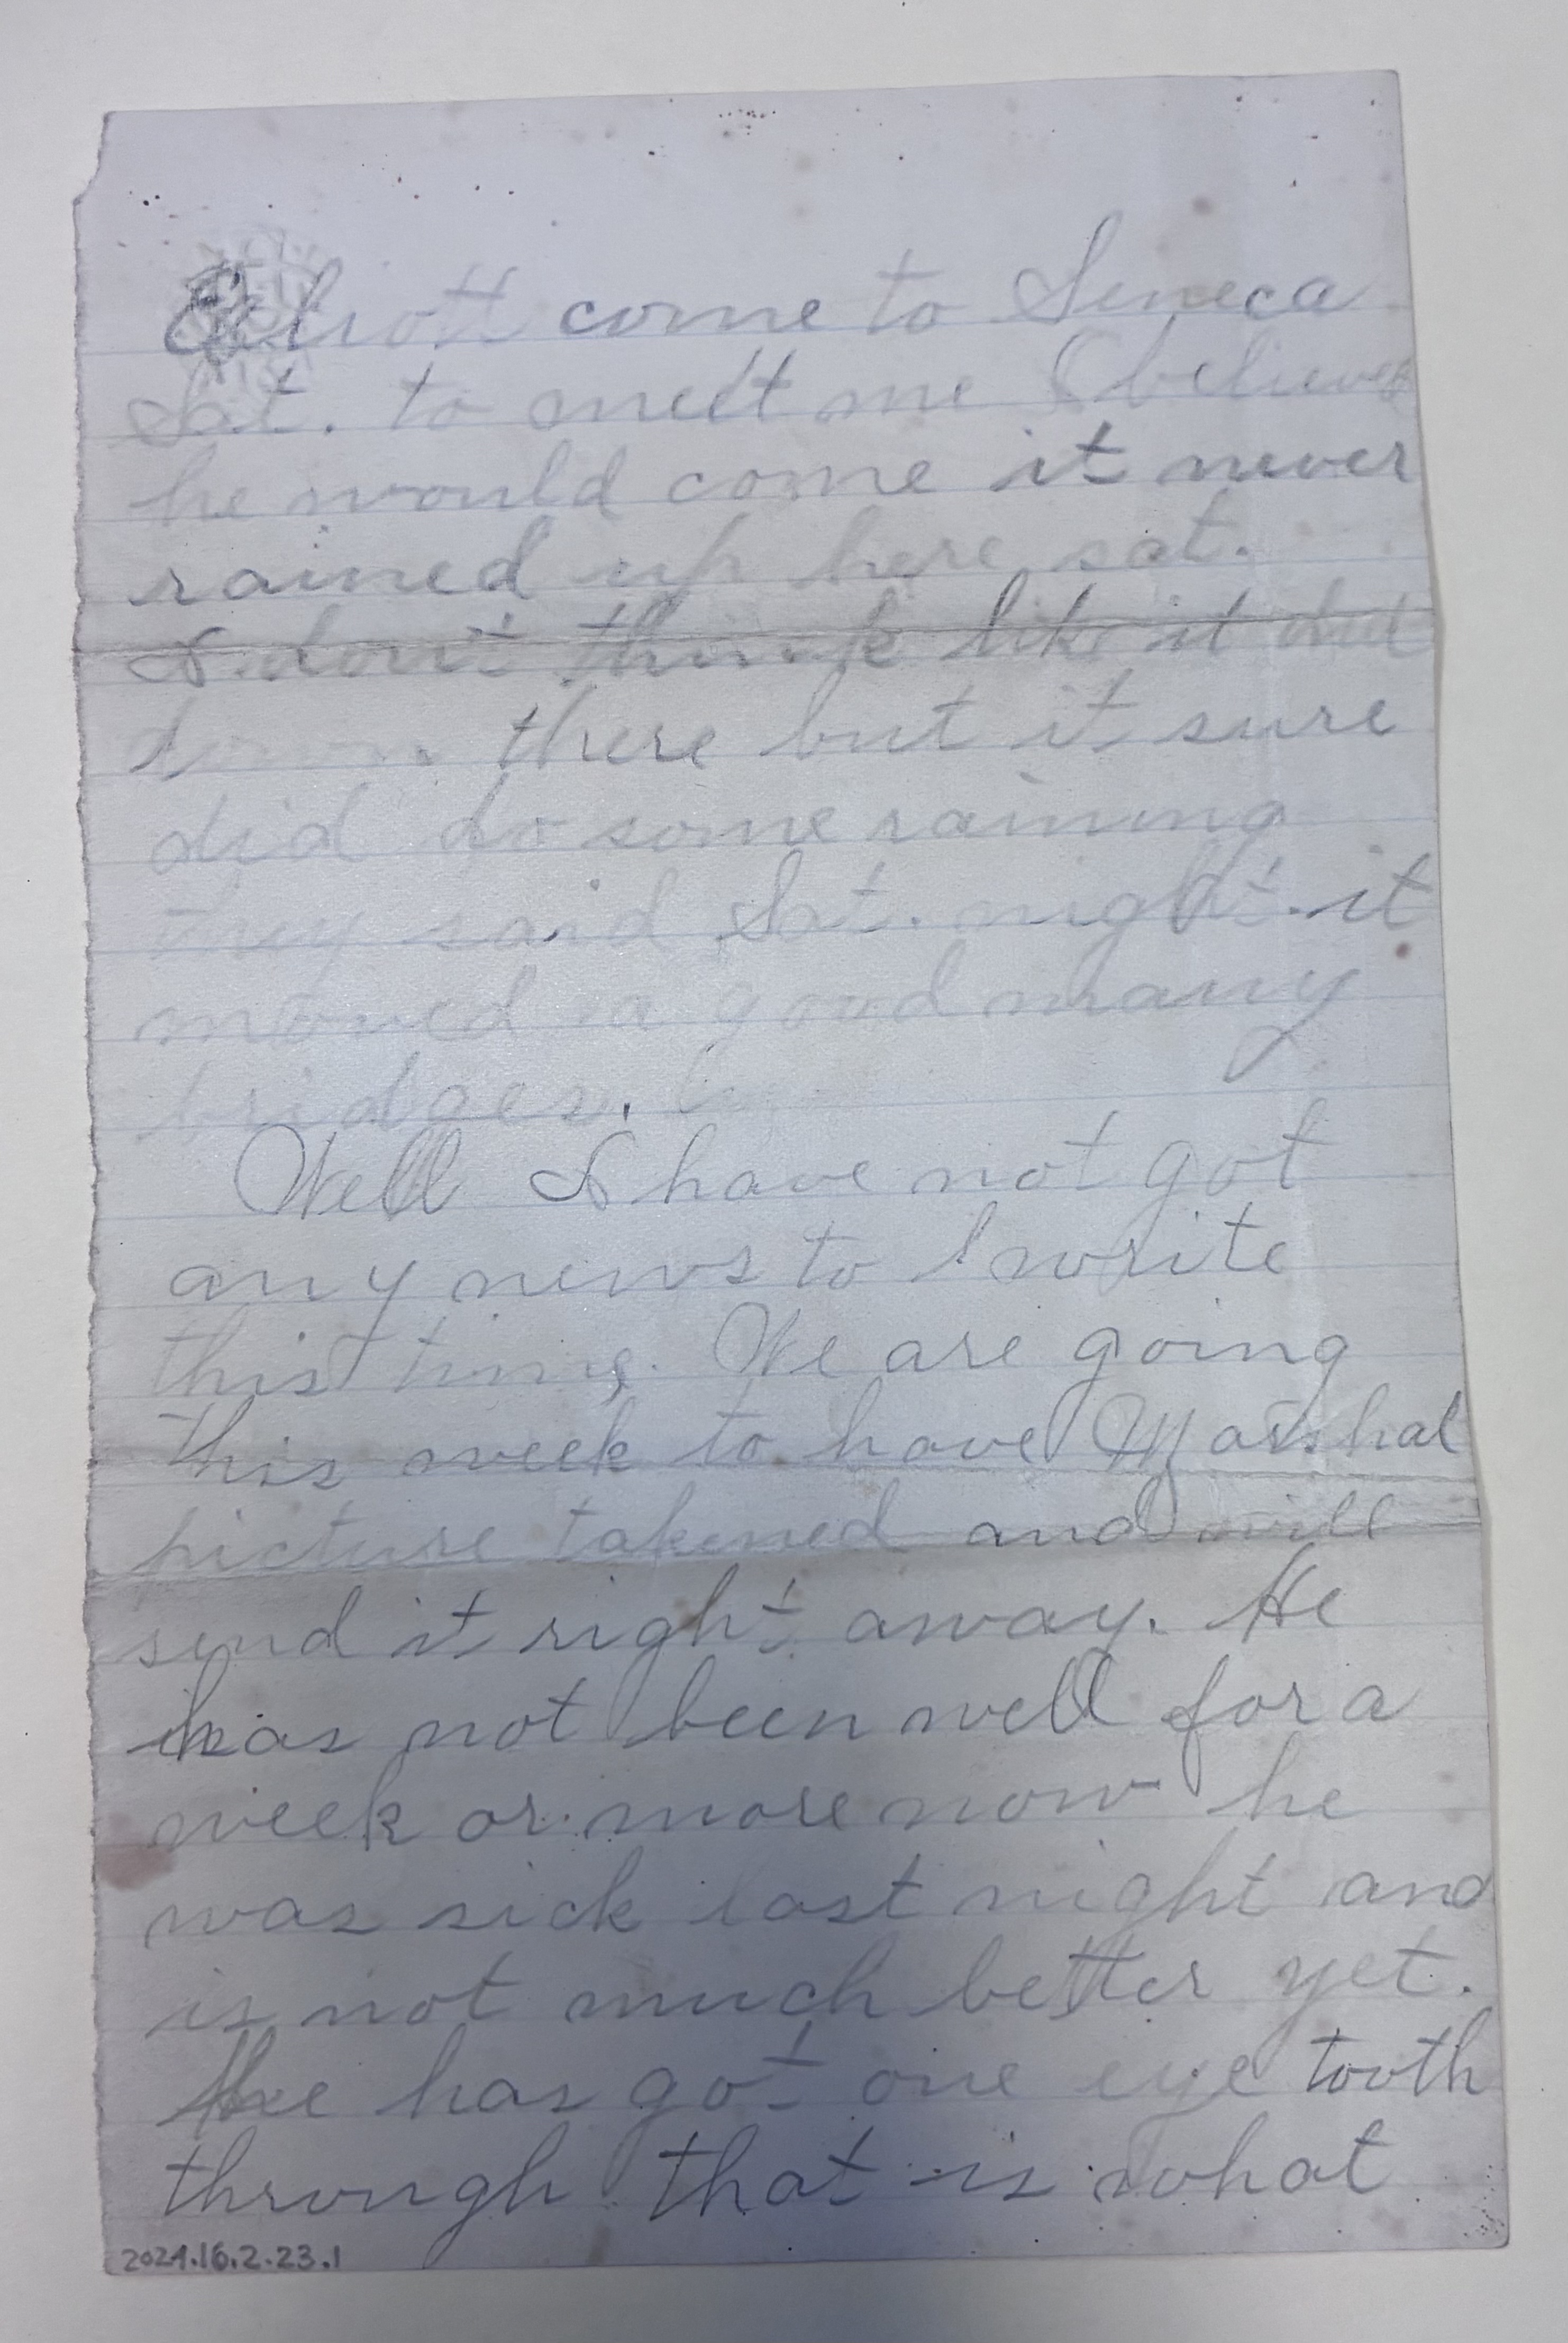 Elliott come to Seneca
Sat. to meet me I believe
he would come it never
rained up here sat.
I don't think like it did
down there but it sure
did do some raining
they said Sat. night it
moved a good many
bridges.
Well I have not got
any news to write
this time. We are going
this week to have Marshal
picture takened and will
send it right away. He
has not been well for a
week or more now he
was sick last night and
is not much better yet.
He has got one eye tooth
through that is what
2024.16.2.23.1